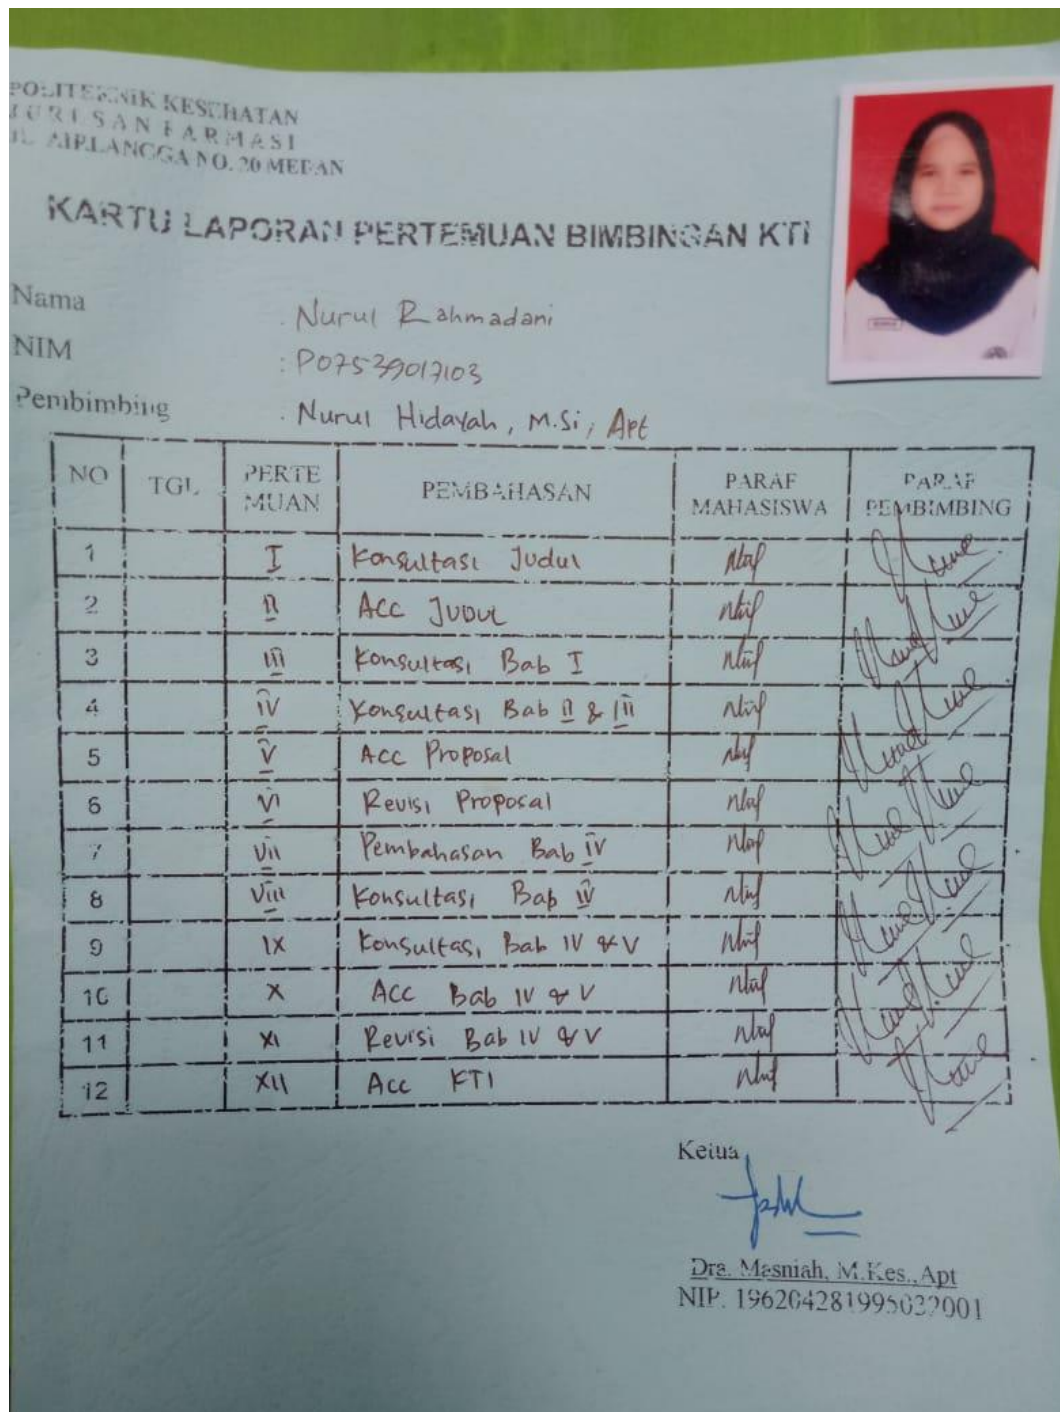 POLITEKNIK KESEHATAN
JURUSAN FARMASI
JL. AIRLANGGA NO. 20 MEDAN
KARTU LAPORAN PERTEMUAN BIMBINGAN KTI
Nama : Nurul Rahmadani
NIM : P07539017103
Pembimbing : Nurul Hidayah, M.Si, Apt
NO TGL PERTE MUAN PEMBAHASAN PARAF MAHASISWA PARAF PEMBIMBING
1 I Konsultasi Judul
2 II ACC JUDUL
3 III Konsultasi Bab I
4 IV Konsultasi Bab II & III
5 V Acc Proposal
6 VI Revisi Proposal
7 VII Pembahasan Bab IV
8 VIII Konsultasi Bab IV
9 IX Konsultasi Bab IV & V
10 X ACC Bab IV & V
11 XI Revisi Bab IV & V
12 XII Acc KTI
Ketua
Dra. Masniah, M.Kes., Apt
NIP. 196204281995032001